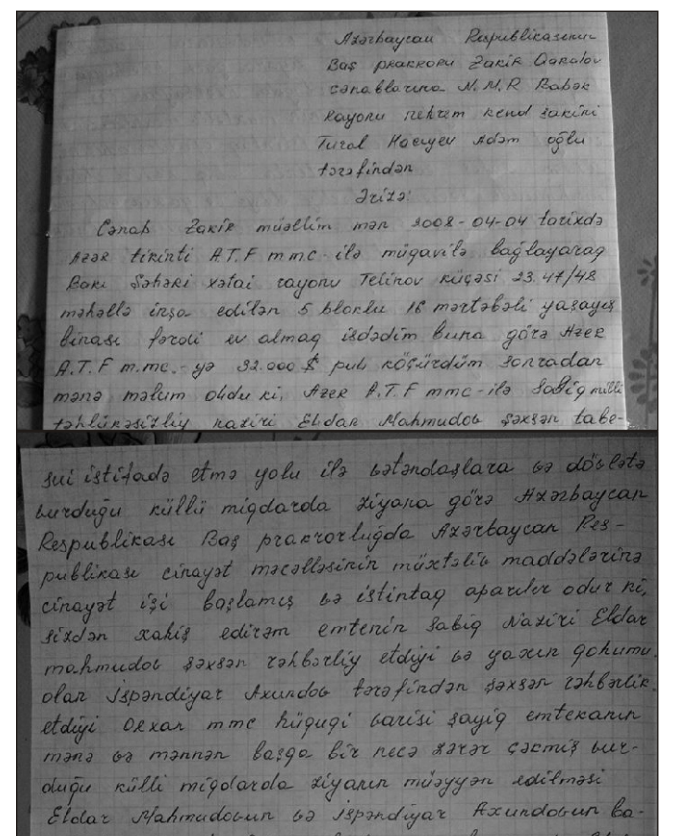 Azərbaycan Respublikasının
Baş prakroru Zakir Qaralov
cənablarına N.M.R Babək
Rayonu nehrəm kənd sakini
Tural Hacıyev Adəm oğlu
tərəfindən
Ərizə:
Cənab Zakir müəllim mən 2008-04-04 tarixdə
Azər tikinti A.T.F mmc-ilə mügavilə bağlayarag
Bakı Şəhəri xətai rayonu Telinov küçəsi 23.47/48
məhəllə inşa edilən 5 bloklu 16 mərtəbəli yaşayış
binası fərdi ev almag isdədim buna görə Azer
A.T.F m.mc.-yə 32.000 $ pul köçürdüm sonradan
mənə məlum oldu ki, Azer A.T.F mmc-ilə Sabig milli
təhlükəsizliy naziri Eldar Mahmudov şəxsən tabe-
sui istifadə etmə yolu ilə vətəndaşlara və dövlətə
vurduğu küllü migdarda ziyana görə Azərbaycan
Respublikası Baş prakrorluğda Azərbaycan Res-
publikası cinayət məcəlləsinin müxtəliv maddələrinə
cinayət işi başlamış və istintag aparılır odur ki,
sizdən xahiş edirəm emtenin Sabig Naziri Eldar
mahmudov şəxsən rəhbərliy etdiyi və yaxın qohumu
olan İspəndiyar Axundov tərəfindən şəxsən rəhbərlik
etdiyi Orxan mmc hügugi varisi sayig emtekanın
mənə və mənnən başga bir necə zərər çəcmiş vur-
duğu külli migdarda ziyanın müəyyən edilməsi
Eldar Mahmudovun və İspəndiyar Axundovun ba-